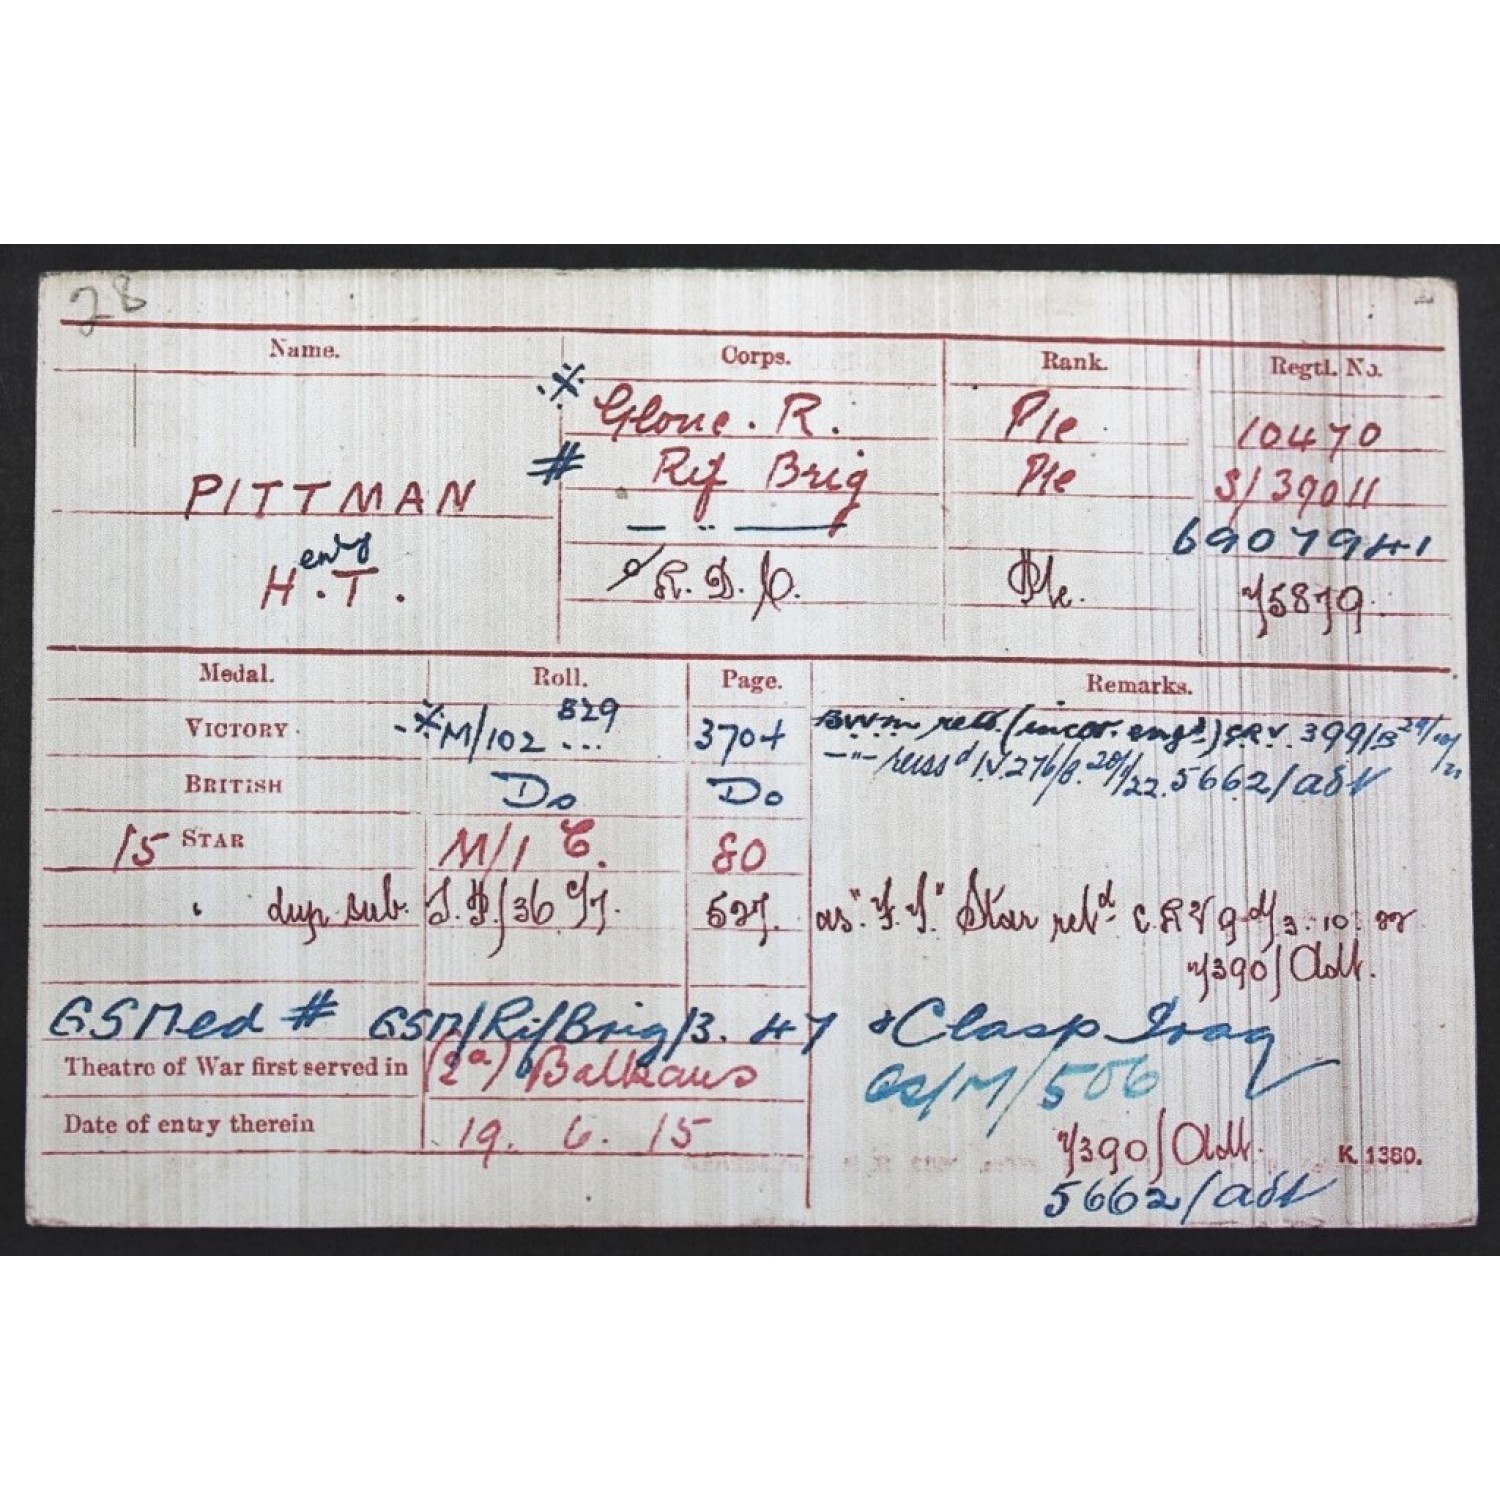 28
Name. Corps. Rank. Regtl. No.
※ Glouc. R. Pte 10470
PITTMAN # Rif Brig Pte S/39011
— " — 6907941
Henry T. ø R.D.C. Pte. 75879
Medal. Roll. Page. Remarks.
VICTORY ※ M/102 B29 ... 3704 BWM retd. (incor. engd) C.R.V. 399/B
BRITISH Do Do — " — reissd I.V. 276/B. 22. 5662/adt
15 STAR M/1 C. 80
" dup. sub. 36 527. as "F.F." Star retd C.R.V 9 d/ 3.10.22
7390/Adt.
GSMed # GSM/RifBrig/B. 47 & Clasp Iraq
Theatre of War first served in (2a) Balkans GS/M/506
Date of entry therein 19. 6. 15 7390/Adt. K. 1380.
5662/adt